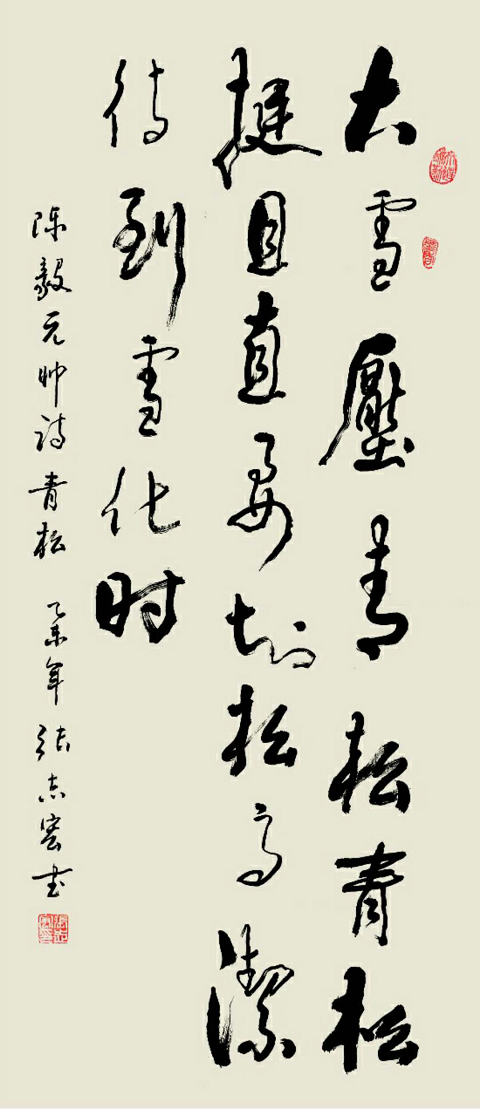 大雪壓青松青松
挺且直要知松高潔
待到雪化时
陈毅元帅诗青松 乙未年张志宏书